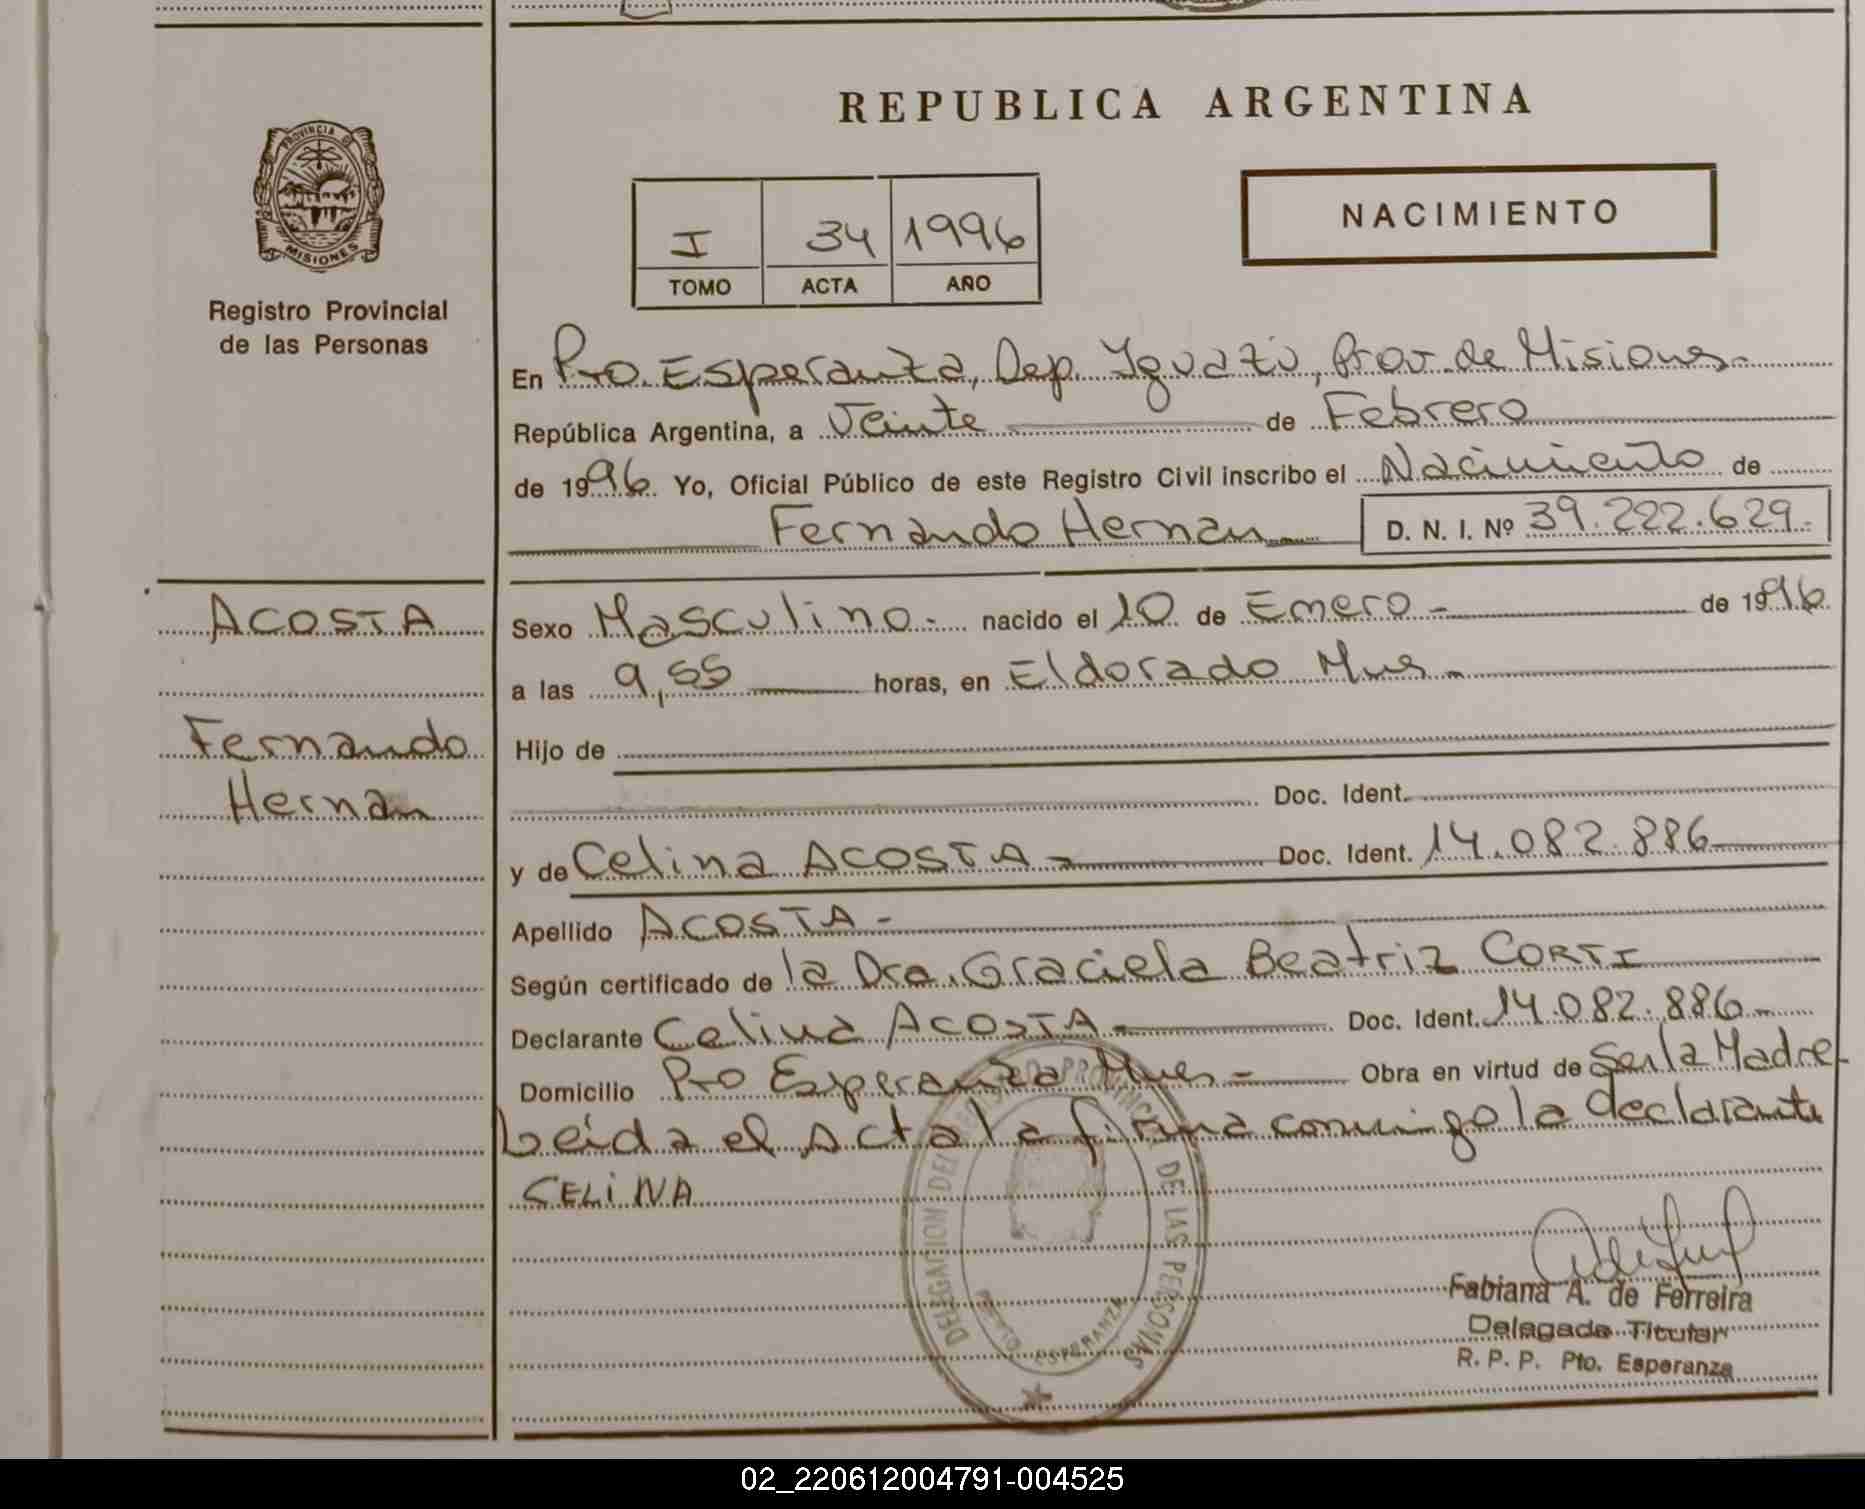 REPUBLICA ARGENTINA
PROVINCIA DE
MISIONES
Registro Provincial
de las Personas
I 34 1996
TOMO ACTA AÑO
NACIMIENTO
En Pto. Esperanza, Dep. Iguazú, Prov. de Misiones-
República Argentina, a Veinte de Febrero
de 1996. Yo, Oficial Público de este Registro Civil inscribo el Nacimiento de
Fernando Hernan D. N. I. Nº 39.222.629.
ACOSTA
Fernando
Hernan
Sexo Masculino.- nacido el 10 de Enero - de 1996.
a las 9,55 horas, en Eldorado Mnes -
Hijo de
Doc. Ident.
y de Celina ACOSTA - Doc. Ident. 14.082.886
Apellido ACOSTA -
Según certificado de la Dra. Graciela Beatriz CORTI
Declarante Celina ACOSTA - Doc. Ident. 14.082.886 -
Domicilio Pto Esperanza Mnes - Obra en virtud de Ser la Madre-
Leída el Acta la firma conmigo la declarante
CELINA
DELEGACION DEL REGISTRO PROVINCIAL DE LAS PERSONAS
PUERTO ESPERANZA
Fabiana A. de Ferreira
Delegada Titular
R. P. P. Pto. Esperanza
02_220612004791-004525